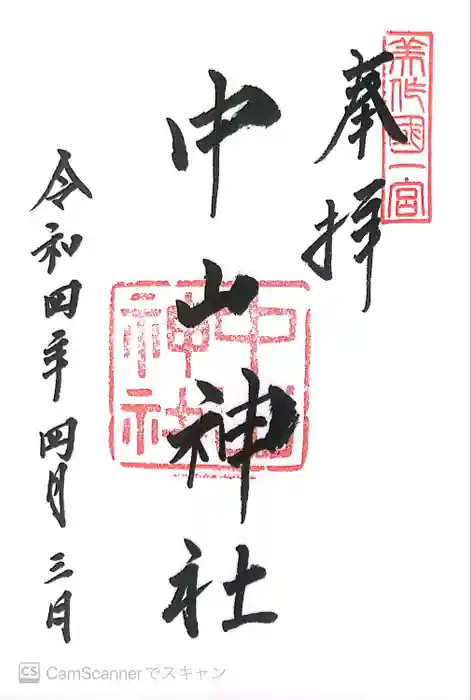 美作國一宮
奉拝
中山神社
中山神社
令和四年四月三日
CS CamScannerでスキャン